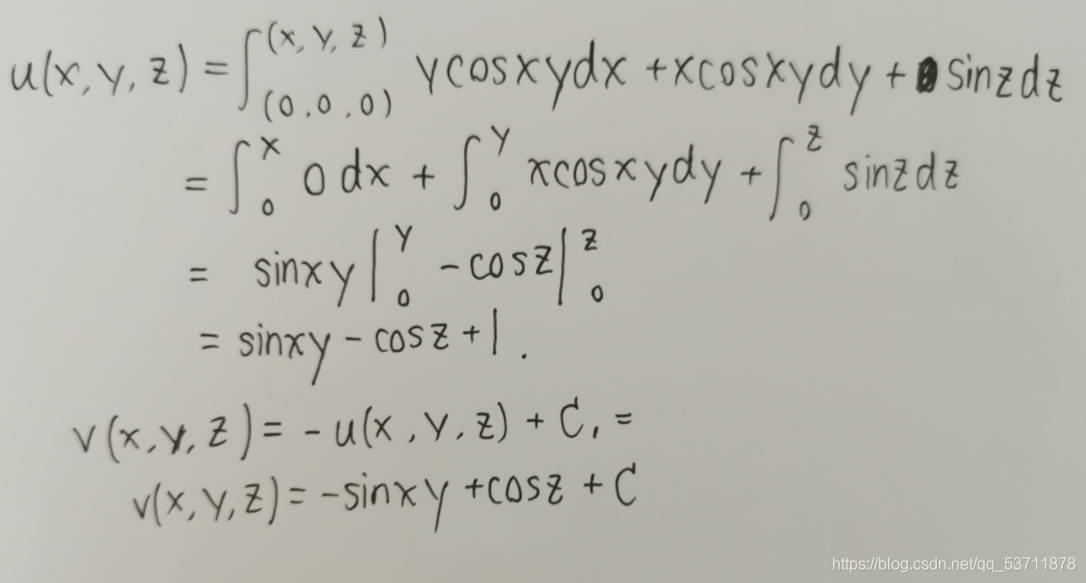 u(x,y,z)=∫_(0,0,0)^(x,y,z) ycosxydx+xcosxydy+sinzdz
=∫_0^x 0dx+∫_0^y xcosxydy+∫_0^z sinzdz
= sinxy|_0^y -cosz|_0^z
= sinxy-cosz+1.
v(x,y,z)=-u(x,y,z)+C₁=
v(x,y,z)=-sinxy+cosz+C
https://blog.csdn.net/qq_53711878